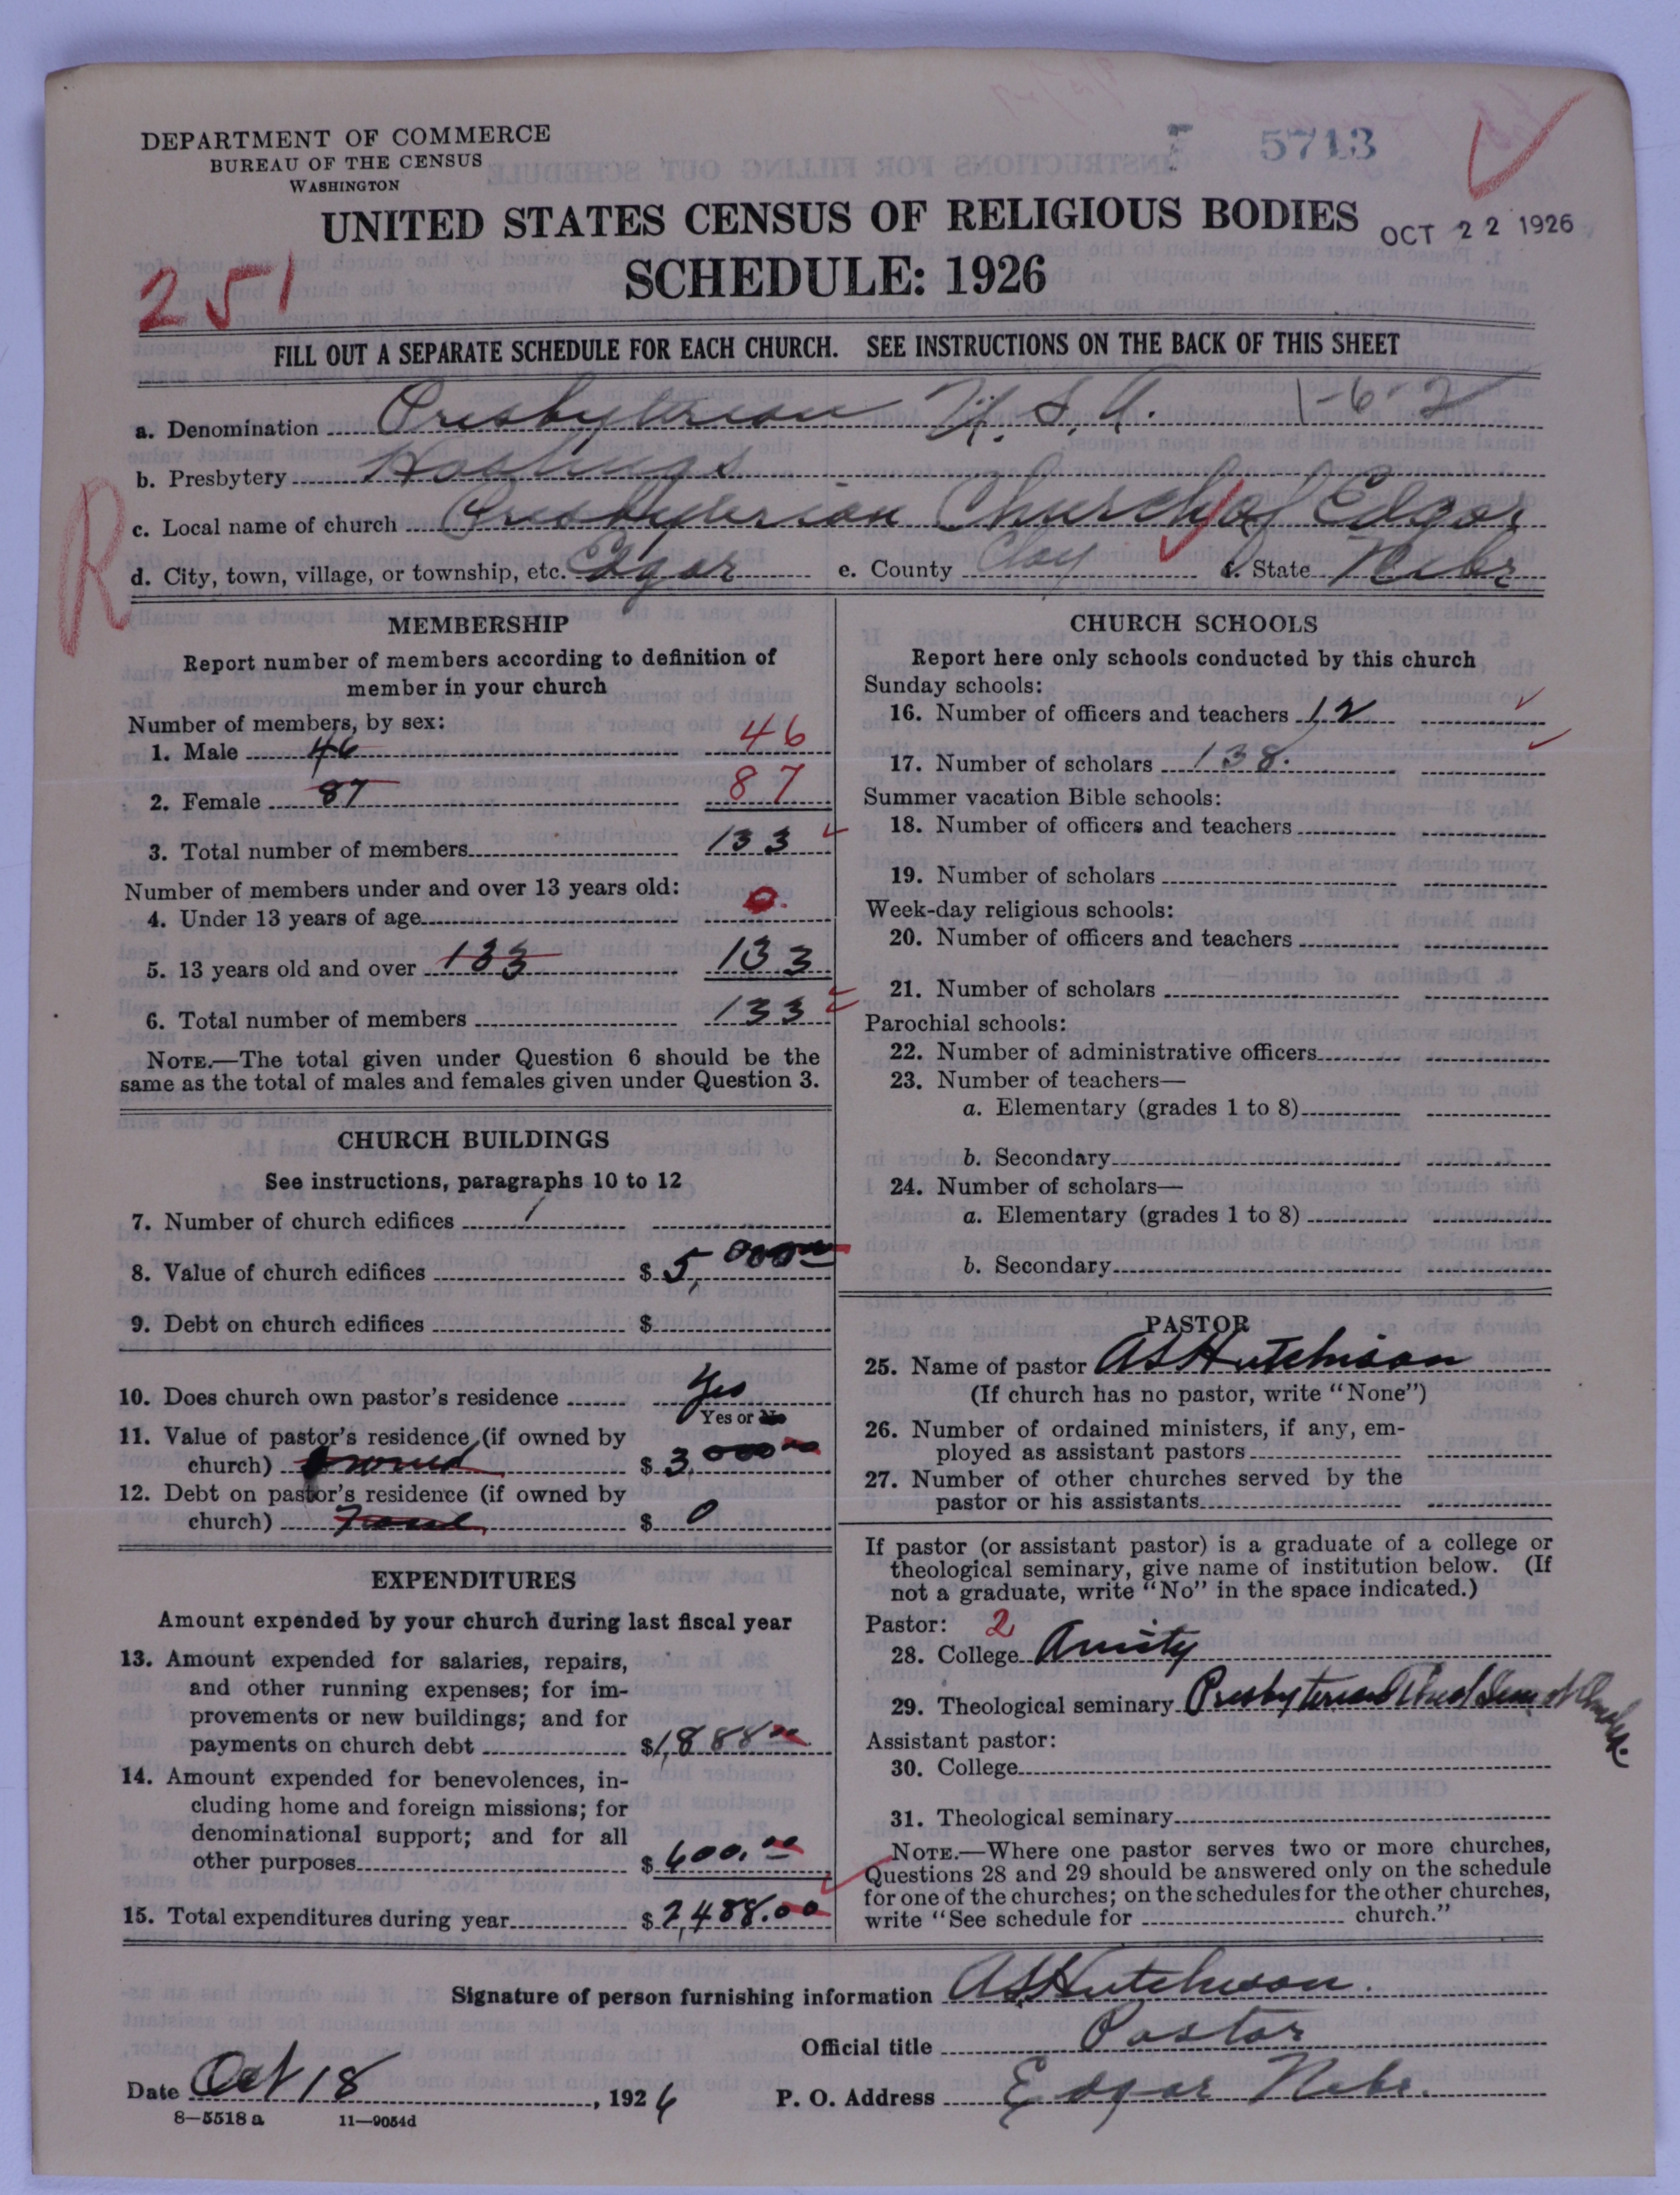 DEPARTMENT OF COMMERCE
BUREAU OF THE CENSUS
WASHINGTON
5713
UNITED STATES CENSUS OF RELIGIOUS BODIES
OCT 22 1926
SCHEDULE: 1926
251
FILL OUT A SEPARATE SCHEDULE FOR EACH CHURCH. SEE INSTRUCTIONS ON THE BACK OF THIS SHEET
a. Denomination Presbyterian U. S. A. 1-6-2
b. Presbytery Hastings
c. Local name of church Presbyterian Church of Edgar
d. City, town, village, or township, etc. Edgar e. County Clay f. State Nebr
R
MEMBERSHIP
Report number of members according to definition of
member in your church
Number of members, by sex:
1. Male 46 46
2. Female 87 87
3. Total number of members 133
Number of members under and over 13 years old:
4. Under 13 years of age 0
5. 13 years old and over 133 133
6. Total number of members 133
NOTE.—The total given under Question 6 should be the
same as the total of males and females given under Question 3.
CHURCH BUILDINGS
See instructions, paragraphs 10 to 12
7. Number of church edifices 1
8. Value of church edifices $5,000.00
9. Debt on church edifices $
10. Does church own pastor's residence Yes
Yes or No
11. Value of pastor's residence (if owned by
church) owned $3,000.00
12. Debt on pastor's residence (if owned by
church) None $ 0
EXPENDITURES
Amount expended by your church during last fiscal year
13. Amount expended for salaries, repairs,
and other running expenses; for im-
provements or new buildings; and for
payments on church debt $1,888.00
14. Amount expended for benevolences, in-
cluding home and foreign missions; for
denominational support; and for all
other purposes $600.00
15. Total expenditures during year $2,488.00
CHURCH SCHOOLS
Report here only schools conducted by this church
Sunday schools:
16. Number of officers and teachers 12
17. Number of scholars 138.
Summer vacation Bible schools:
18. Number of officers and teachers
19. Number of scholars
Week-day religious schools:
20. Number of officers and teachers
21. Number of scholars
Parochial schools:
22. Number of administrative officers
23. Number of teachers—
a. Elementary (grades 1 to 8)
b. Secondary
24. Number of scholars—
a. Elementary (grades 1 to 8)
b. Secondary
PASTOR
25. Name of pastor A S Hutchison
(If church has no pastor, write "None")
26. Number of ordained ministers, if any, em-
ployed as assistant pastors
27. Number of other churches served by the
pastor or his assistants
If pastor (or assistant pastor) is a graduate of a college or
theological seminary, give name of institution below. (If
not a graduate, write "No" in the space indicated.)
Pastor: 2
28. College Amity
29. Theological seminary Presbyterian Theol Sem of Omaha.
Assistant pastor:
30. College
31. Theological seminary
NOTE.—Where one pastor serves two or more churches,
Questions 28 and 29 should be answered only on the schedule
for one of the churches; on the schedules for the other churches,
write "See schedule for church."
Signature of person furnishing information A S Hutchison.
Official title Pastor
Date Oct 18, 1926 P. O. Address Edgar Nebr.
8—5518 a 11—9054d